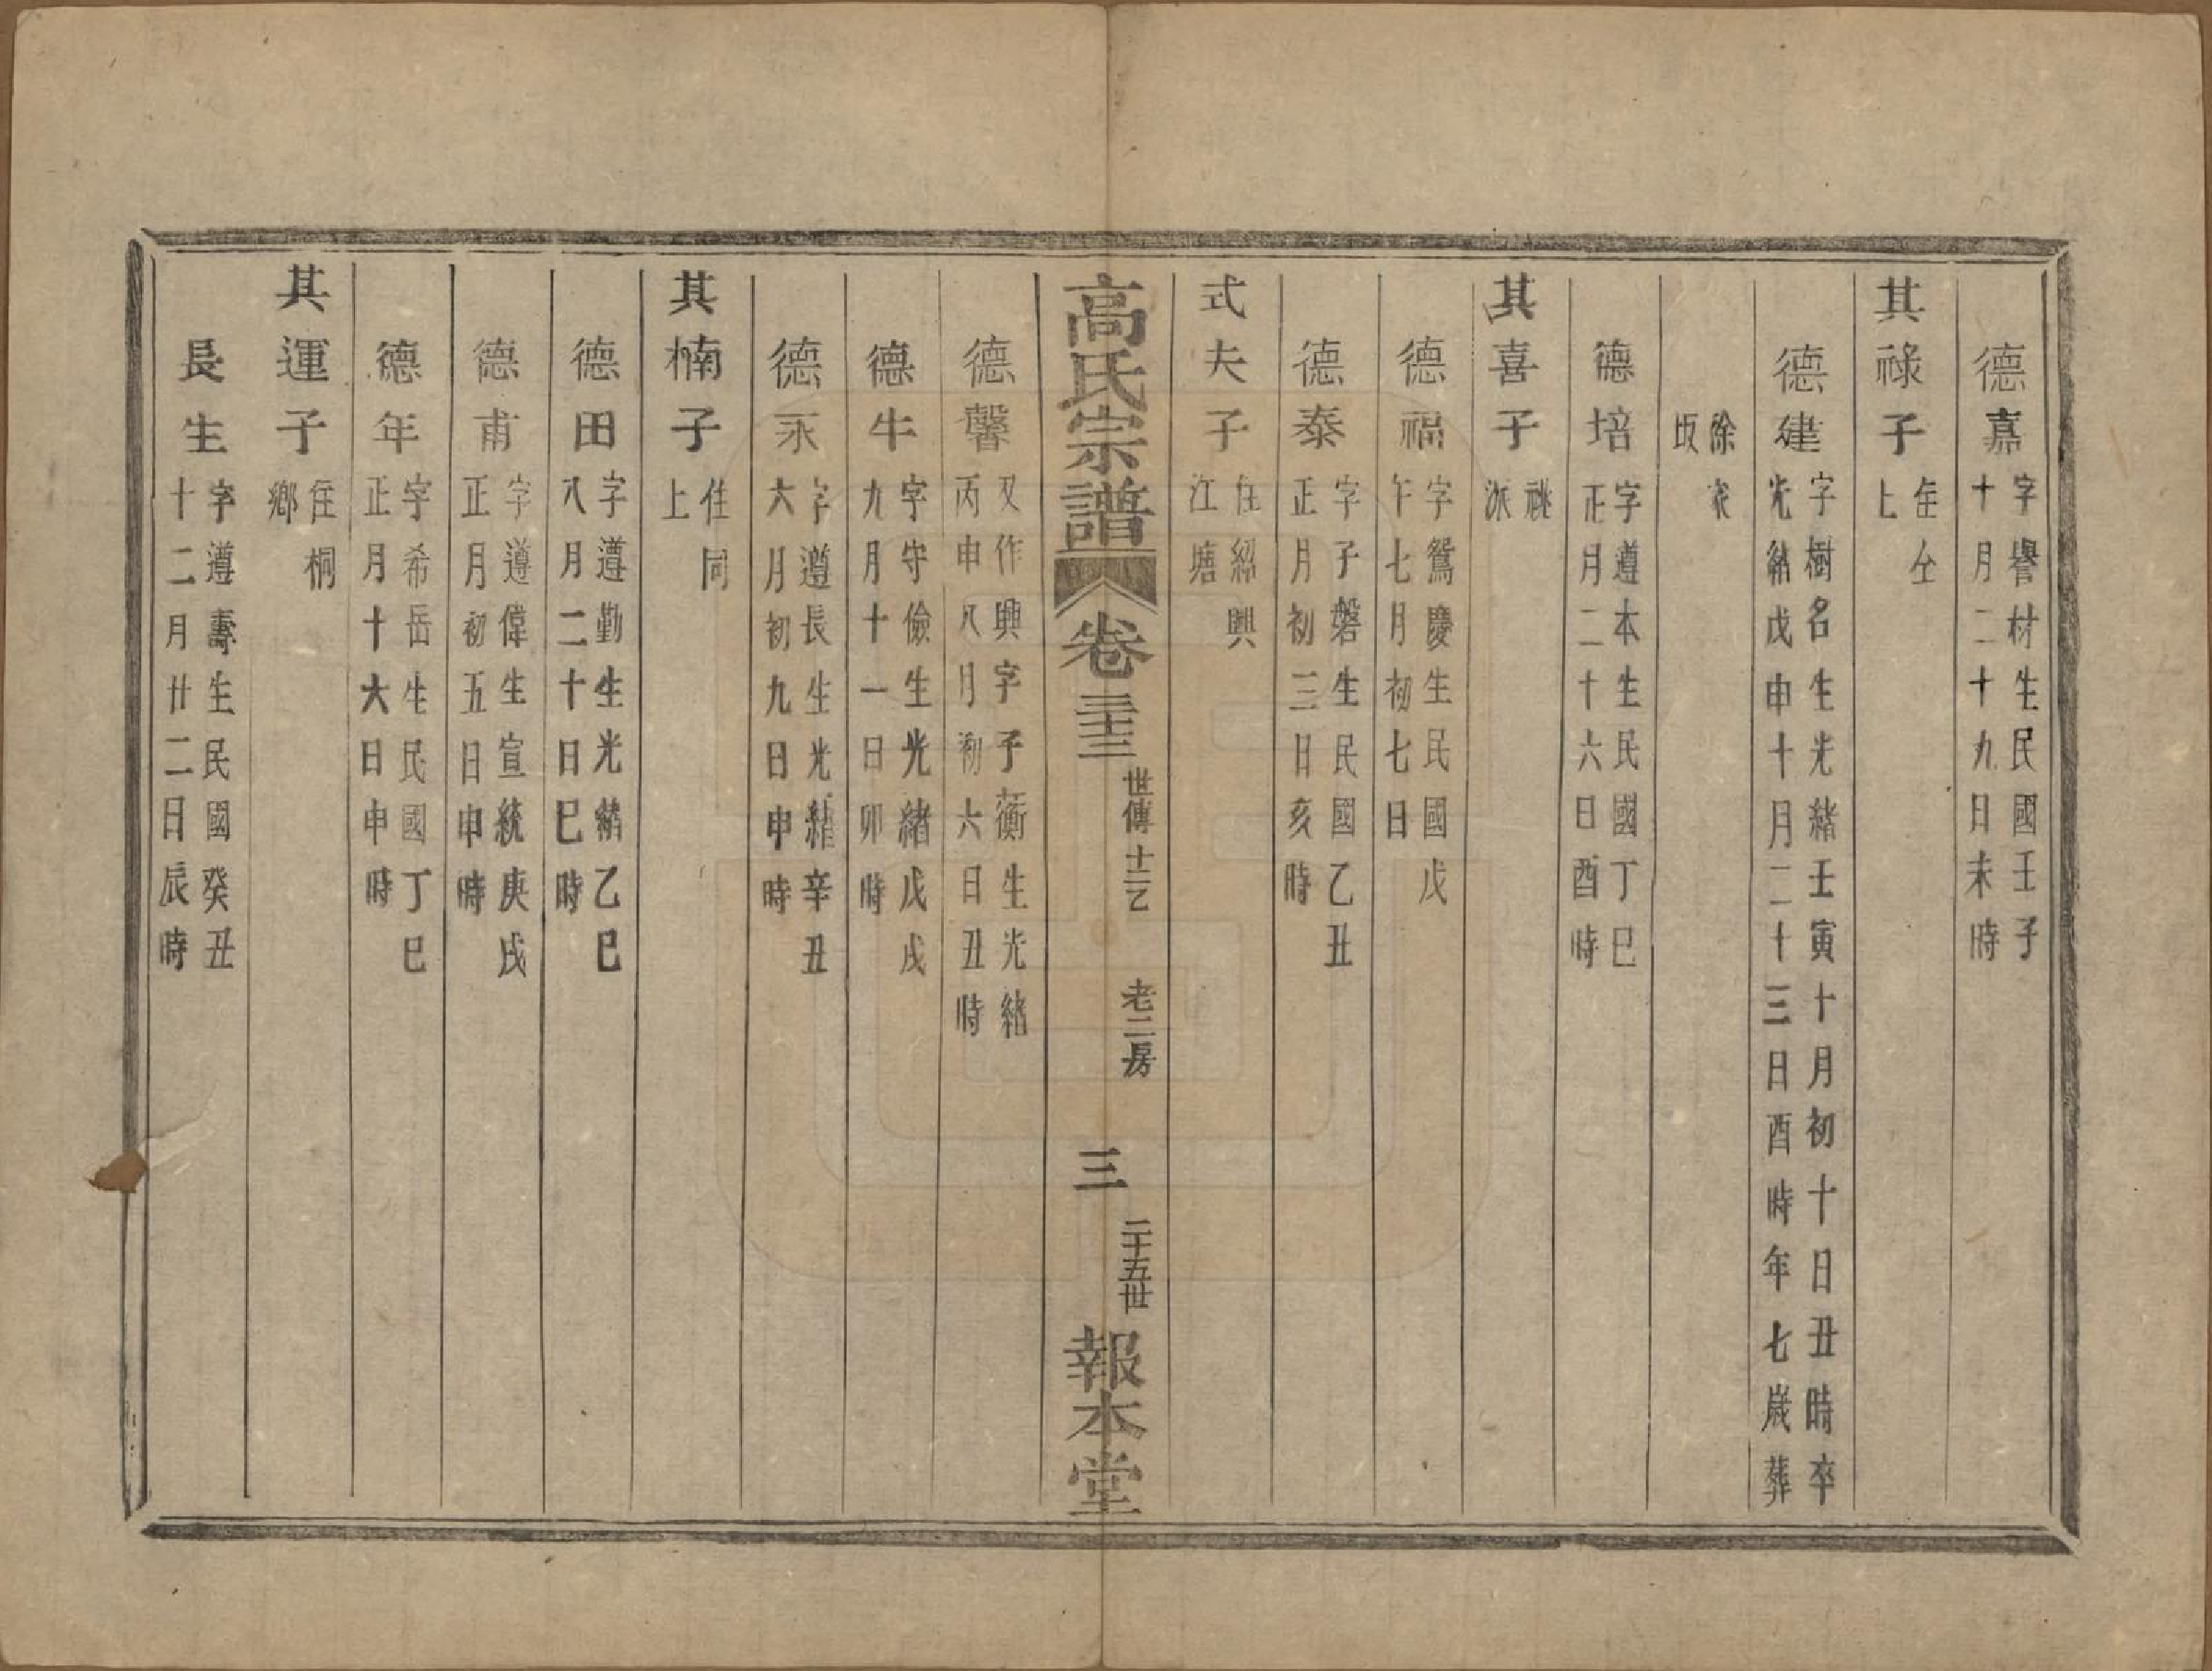 德嘉 字譽材生民國壬子
十月二十九日未時
其祿子 住仝
上
德建 字樹名生光緒壬寅十月初十日丑時卒
光緒戊申十月二十三日酉時年七歲葬
徐家
坂
德培 字遵本生民國丁巳
正月二十六日酉時
其喜子 祧
派
德福 字鴛慶生民國戊
午七月初七日
德泰 字子磐生民國乙丑
正月初三日亥時
式夫子 住紹興
江塘
高氏宗譜 卷三十三 世傳十二乙 老二房 三 二十五世 報本堂
德馨 又作興字子衡生光緒
丙申八月初六日丑時
德牛 字守儉生光緒戊戌
九月十一日卯時
德永 字遵長生光緒辛丑
六月初九日申時
其楠子 住同
上
德田 字遵勤生光緒乙巳
八月二十日巳時
德甫 字遵偉生宣統庚戌
正月初五日申時
德年 字希岳生民國丁巳
正月十六日申時
其運子 住桐
鄉
長生 字遵壽生民國癸丑
十二月廿二日辰時